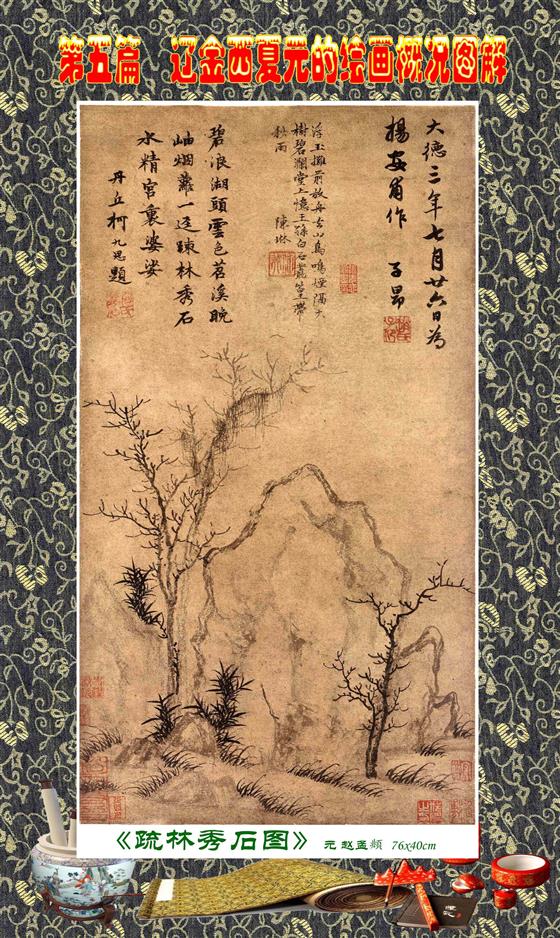 第五篇 辽金西夏元的绘画概况图解
大德三年七月廿六日為
楊安甫作 子昂
浮玉攤前放舟去山鳥鳴煙隔大
樹碧瀾堂上憶王孫白石叢篁帶
秋雨 陳琳
碧浪湖頭雲色苕溪晚
岫烟蘿一逕踈林秀石
水精宮裏婆娑
丹丘柯九思題
《疏林秀石图》 元 赵孟頫 76x40cm